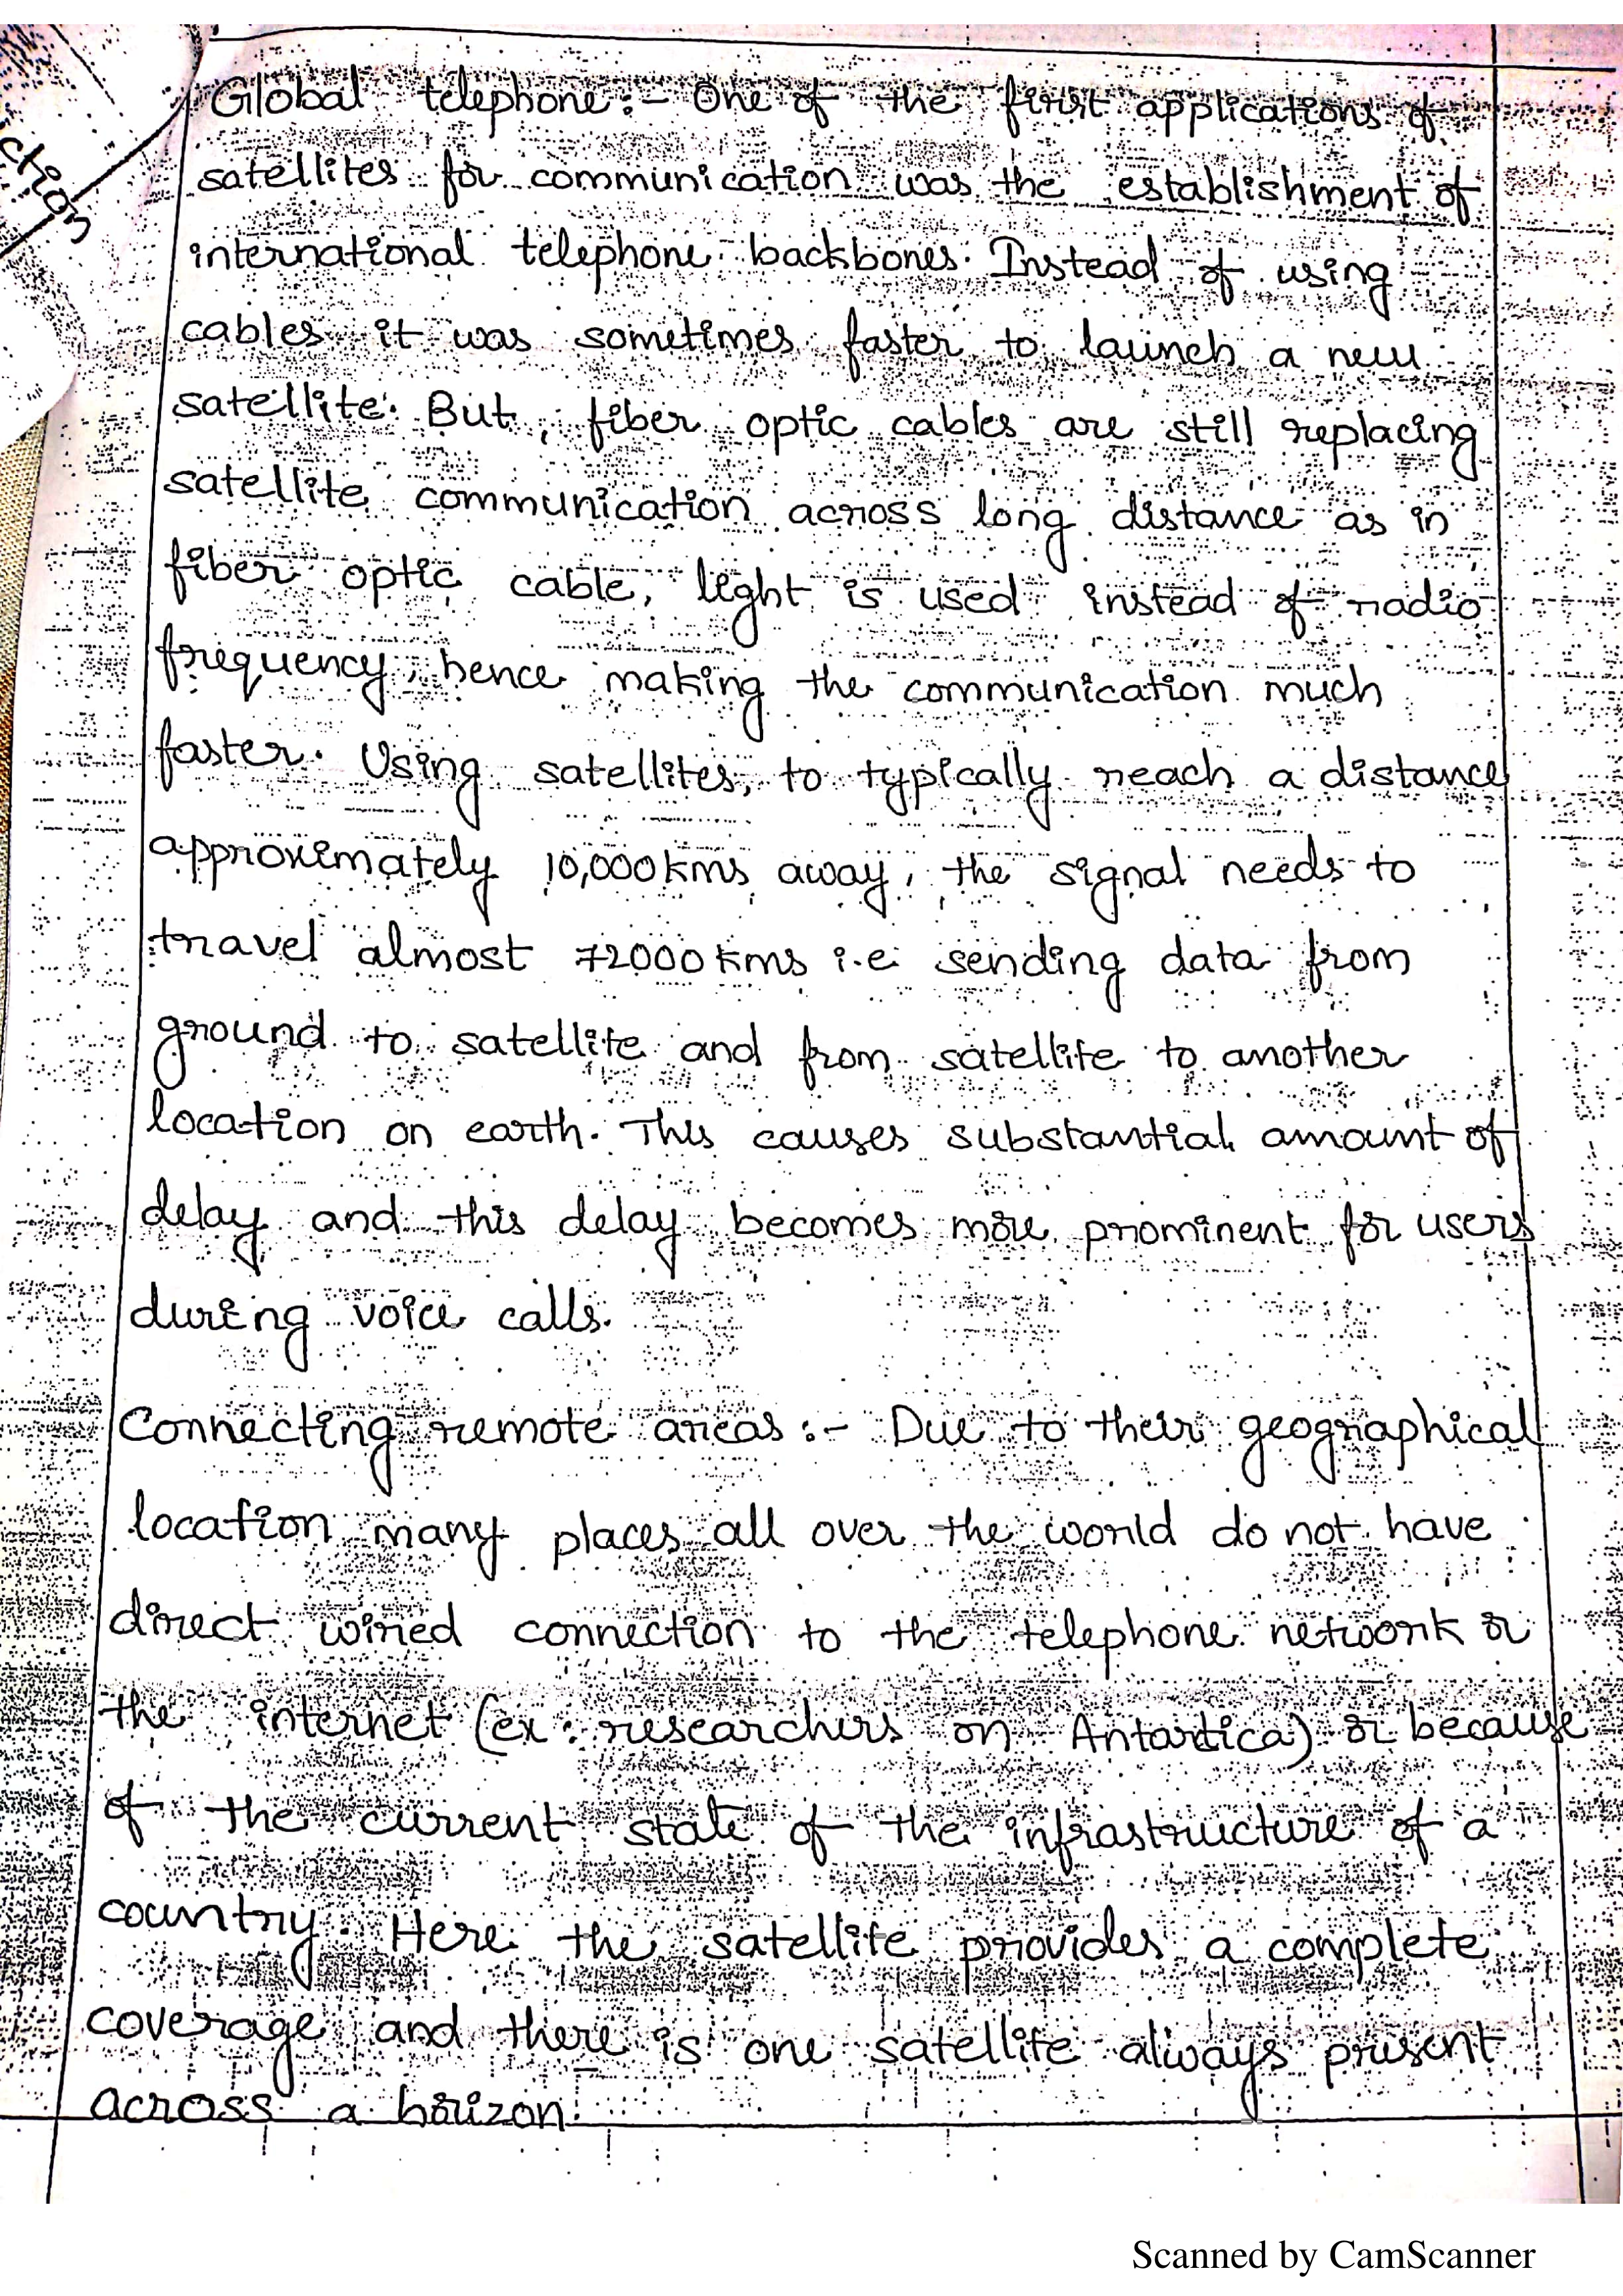 ction
Global telephone:- One of the first applications of
satellites for communication was the establishment of
international telephone backbones. Instead of using
cables it was sometimes faster to launch a new
satellite. But, fiber optic cables are still replacing
satellite communication across long distance as in
fiber optic cable, light is used instead of radio
frequency, hence making the communication much
faster. Using satellites, to typically reach a distance
approximately 10,000 kms away, the signal needs to
travel almost 72000 kms i.e sending data from
ground to satellite and from satellite to another
location on earth. This causes substantial amount of
delay and this delay becomes more prominent for users
during voice calls.
Connecting remote areas:- Due to their geographical
location many places all over the world do not have
direct wired connection to the telephone network or
the internet (ex: researchers on Antartica) or because
of the current state of the infrastructure of a
country. Here the satellite provides a complete
coverage and there is one satellite always present
across a horizon.
Scanned by CamScanner